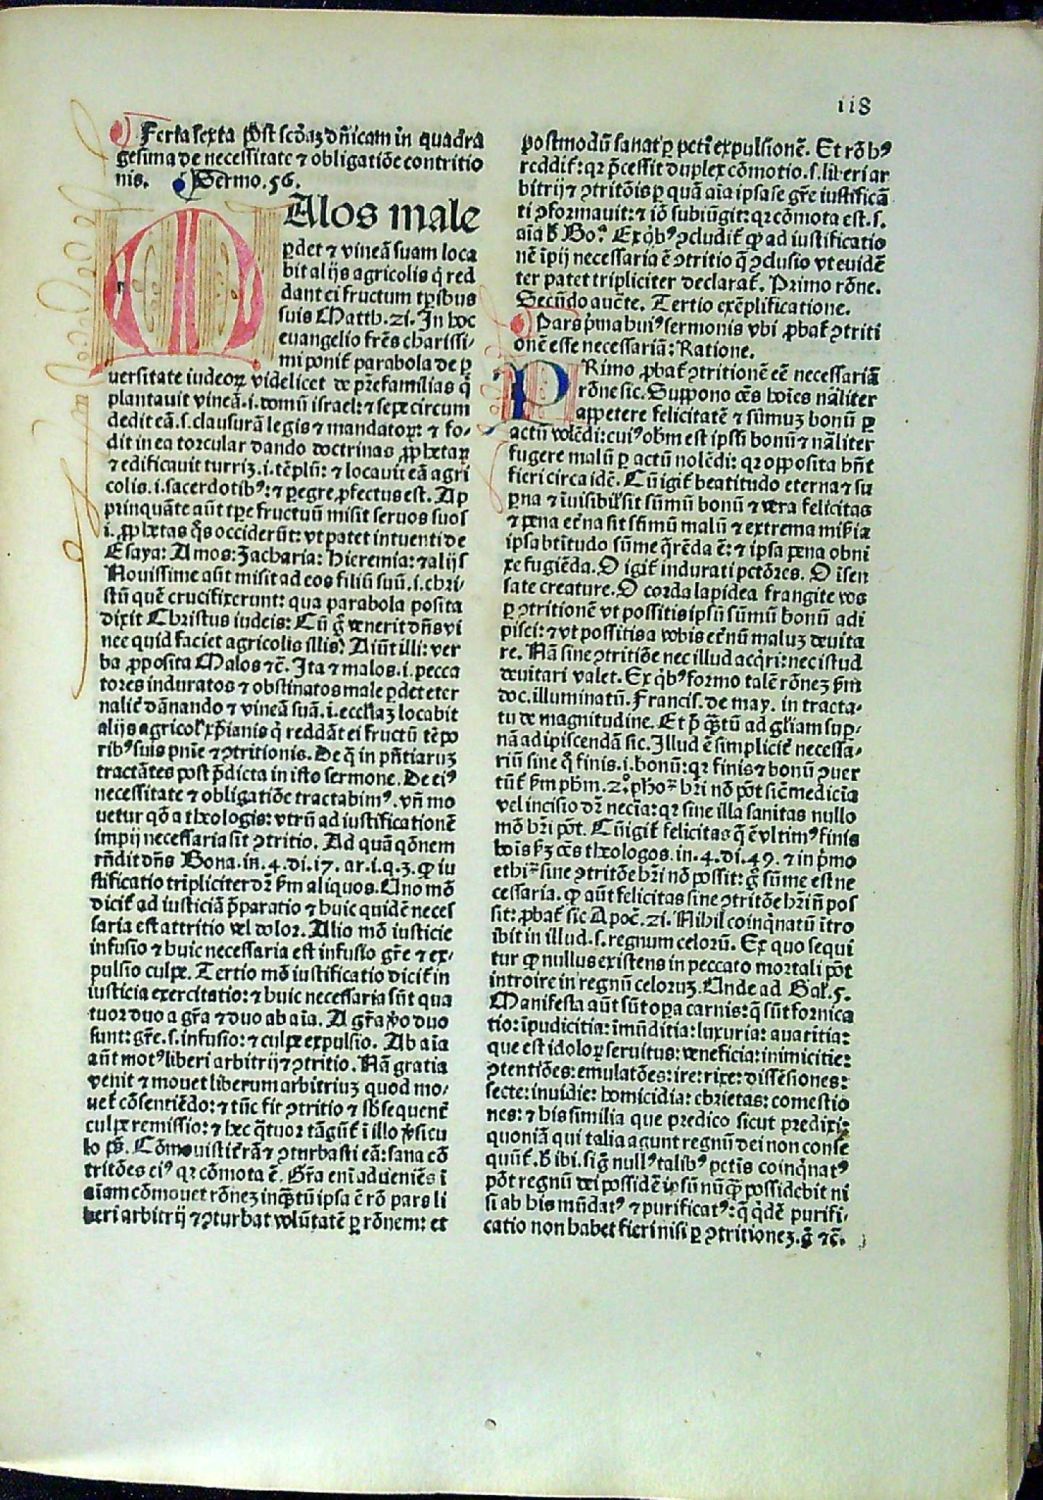 118
Feria sexta post scđaz dñicam in quadra
gesima de necessitate ⁊ obligatiõe contritio
nis. Sermo.56.
MAlos male
ꝑdet ⁊ vineã suam loca
bit alijs agricolis q̇ red
dant ei fructum tp̃ibus
suis Matth.21. In hoc
euangelio frẽs charissi⸗
mi ponit᷑ parabola de ꝑ
uersitate iudeoꝝ videlicet de pr̃efamilias q̇
plantauit vineã.i.domũ israel: ⁊ sepe circum
dedit eã.s.clausurã legis ⁊ mandatoꝝ: ⁊ fo⸗
dit in ea torcular dando doctrinas ꝓphetaꝝ
⁊ edificauit turriz.i.tẽplũ: ⁊ locauit eã agri
colis.i.sacerdotibꝰ: ⁊ ꝑegre ꝓfectus est. Ap
prinquãte aũt tꝑe fructuũ misit seruos suos
i.ꝓphetas q̃s occiderũt: vt patet intuenti de
Esaya: Amos: Zacharia: Hieremia: ⁊ alijs
Nouissime aũt misit ad eos filiũ suũ.i.chri⸗
stũ quẽ crucifixerunt: qua parabola posita
dixit Christus iudeis: Cũ g̊ venerit dñs vi
nec quid faciet agricolis illis? Aiũt illi: ver
ba ꝓposita Malos ⁊c̃. Ita ⁊ malos.i.pecca
tores induratos ⁊ obstinatos male ꝑdet eter
nalit᷑ dãnando ⁊ vineã suã.i.eccl̃iaʒ locabit
alijs agricol̃ xp̃ianis q̇ reddãt ei fructũ tẽpo
ribꝰ suis pnĩe ⁊ ↄtritionis. De q̃ in pñtiaruʒ
tractãtes post p̃dicta in isto sermone. De eiꝰ
necessitate ⁊ obligatiõe tractabimꝰ. vñ mo
uetur q̃õ a theologis: vtrũ ad iustificationẽ
impij necessaria sit ↄtritio. Ad quã q̃õnem
rñdit dñs Bona.in.4.di.17.ar.i.q.3.ꝙ iu
stificatio tripliciter dr̃ ẜm aliquos. Uno mõ
dicit᷑ ad iusticiã p̃paratio ⁊ huic quidẽ neces
saria est attritio vel dolor. Alio mõ iusticie
infusio ⁊ huic necessaria est infusio gr̃e ⁊ ex⸗
pulsio culpe. Tertio mõ iustificatio dicit᷑ in
iusticia exercitatio: ⁊ huic necessaria sũt qua
tuor duo a gr̃a ⁊ duo ab aĩa. A gr̃a ꝟo duo
sunt: gr̃e.s.infusio: ⁊ culpe expulsio. Ab aĩa
aũt motꝰ liberi arbitrij ⁊ ↄtritio. Nã gratia
venit ⁊ mouet liberum arbitriuʒ quod mo⸗
uet᷑ cõsentiẽdo: ⁊ tũc fit ↄtritio ⁊ sb̃sequent᷑
culpe remissio: ⁊ hec q̃tuor tãgũt᷑ ĩ illo ꝟsicu
lo ps̃. Cõmouisti terrã ⁊ ↄturbasti eã: sana cõ
tritões eiꝰ qꝛ cõmota ẽ. Gr̃a eni adueniẽs ĩ
aĩam cõmouet rõneʒ inq̃tũ ipsa ẽ rõ pars li
beri arbitrij ⁊ ↄturbat volũtatẽ ꝑ rõnem: et
postmodũ sanat ꝑ pctĩ expulsionẽ. Et rõ hꝰ
reddit᷑: qꝛ p̃cessit duplex cõmotio.s.liberi ar
bitrij ⁊ ↄtritõis ꝑ quã aĩa ipsa se gr̃e iustificã
ti ↄformauit: ⁊ iõ subiũgit: qꝛ cõmota est.s.
aĩa h̃ Bo. Ex q̇bꝰ ↄcludit᷑ ꝙ ad iustificatio
nẽ ĩpij necessaria ẽ ↄtritio q̃ ↄclusio vt euidẽ
ter patet tripliciter declarat᷑. Primo rõne.
Secũdo aucte. Tertio exẽplificatione.
Pars p̃ma huiꝰ sermonis vbi ꝓbat᷑ ↄtriti
onẽ esse necessariã: Ratione.
PRimo ꝓbat᷑ ↄtritionẽ eẽ necessariã
rõne sic. Suppono oẽs hoĩes nãliter
appetere felicitatẽ ⁊ sũmuʒ bonũ ꝑ
actũ volẽdi: cuiꝰ obm̃ est ipsũ bonũ ⁊ nãliter
fugere malũ ꝑ actũ nolẽdi: qꝛ opposita hñt
fieri circa idẽ. Cũ igit᷑ beatitudo eterna ⁊ su
ꝑna ⁊ ĩuisibil̃ sit sũmũ bonũ ⁊ vera felicitas
⁊ pena et̃na sit sũmũ malũ ⁊ extrema mis̃ia
ipsa btĩtudo sũme q̃rẽda ẽ: ⁊ ipsa pena obni
xe fugiẽda. O igit᷑ indurati pctõres. O ĩsen
sate creature. O corda lapidea frangite vos
ꝑ ↄtritionẽ vt possitis ipsũ sũmũ bonũ adi
pisci: ⁊ vt possitis a vobis et̃nũ maluʒ deuita
re. Nã sine ↄtritiõe nec illud acq̇ri: nec istud
deuitari valet. Ex q̇bꝰ formo talẽ rõneʒ ẜm
doc.illuminatũ. Francis. de may. in tracta⸗
tu de magnitudine. Et p̃ q̃tũ ad gl̃iam suꝑ⸗
nã adipiscendã sic. Illud ẽ simplicit᷑ necessa⸗
riũ sine q̊ finis.i.bonũ: qꝛ finis ⁊ bonũ ↄuer
tũt᷑ ẜm ph̃m.2. phoꝝ hr̃i nõ põt sic medicia
vel incisio dr̃ necĩa: qꝛ sine illa sanitas nullo
mõ hr̃i põt. Cũ igit᷑ felicitas q̃ ẽ vltimꝰ finis
hoĩs ẜʒ oẽs theologos.in.4.di.49.⁊ in p̃mo
ethi. sine ↄtritõe hr̃i nõ possit: g̊ sũme est ne
cessaria. ꝙ aũt felicitas sine ↄtritõe hr̃i nñ pos
sit: ꝓbat᷑ sic Apoc̃.21. Nihil coinq̃natũ ĩtro
ibit in illud.s.regnum celorũ. Ex quo sequi
tur ꝙ nullus existens in peccato mortali põt
introire in regnũ celoruʒ. Unde ad Gal̃.5.
Manifesta aũt sũt oꝑa carnis: q̃ sũt fornica
tio: ĩpudicitia: ĩmũditia: luxuria: auaritia:
que est idoloꝝ seruitus: veneficia: inimicitie:
ↄtentiões: emulatões: ire: rixe: dissẽsiones:
secte: inuidie: homicidia: ebrietas: comestio
nes: ⁊ his similia que predico sicut predixi:
quoniã qui talia agunt regnũ dei non conse
quũt᷑. h̃ ibi. sig̃ nullꝰ talibꝰ pctĩs coinq̃natꝰ
põt regnũ dei possidẽ ipsũ nũq̃ possidebit ni
si ab his mũdatꝰ ⁊ purificatꝰ: q̃ q̇dẽ purifi⸗
catio non habet fieri nisi ꝑ ↄtritioneʒ. g̊ ⁊c̃.